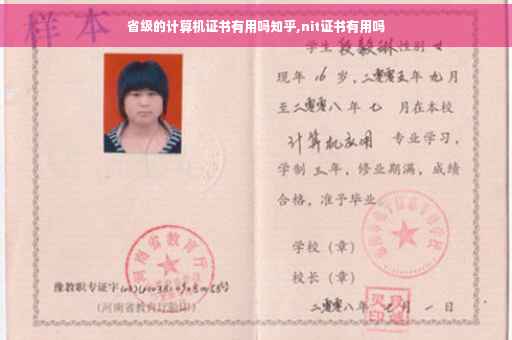 省级的计算机证书有用吗知乎,nit证书有用吗
样本
学生 段毅琳 性别 女
现年 16 岁，二零零五年 九 月
至二零零八 年 七 月在本校
计算机应用 专业学习，
学制 三 年，修业期满，成绩
合格，准予毕业
学校（章）
校长（章）
二零零八年 七 月 一 日
河南省教育厅
豫教职专证字
（河南省教育厅验印）